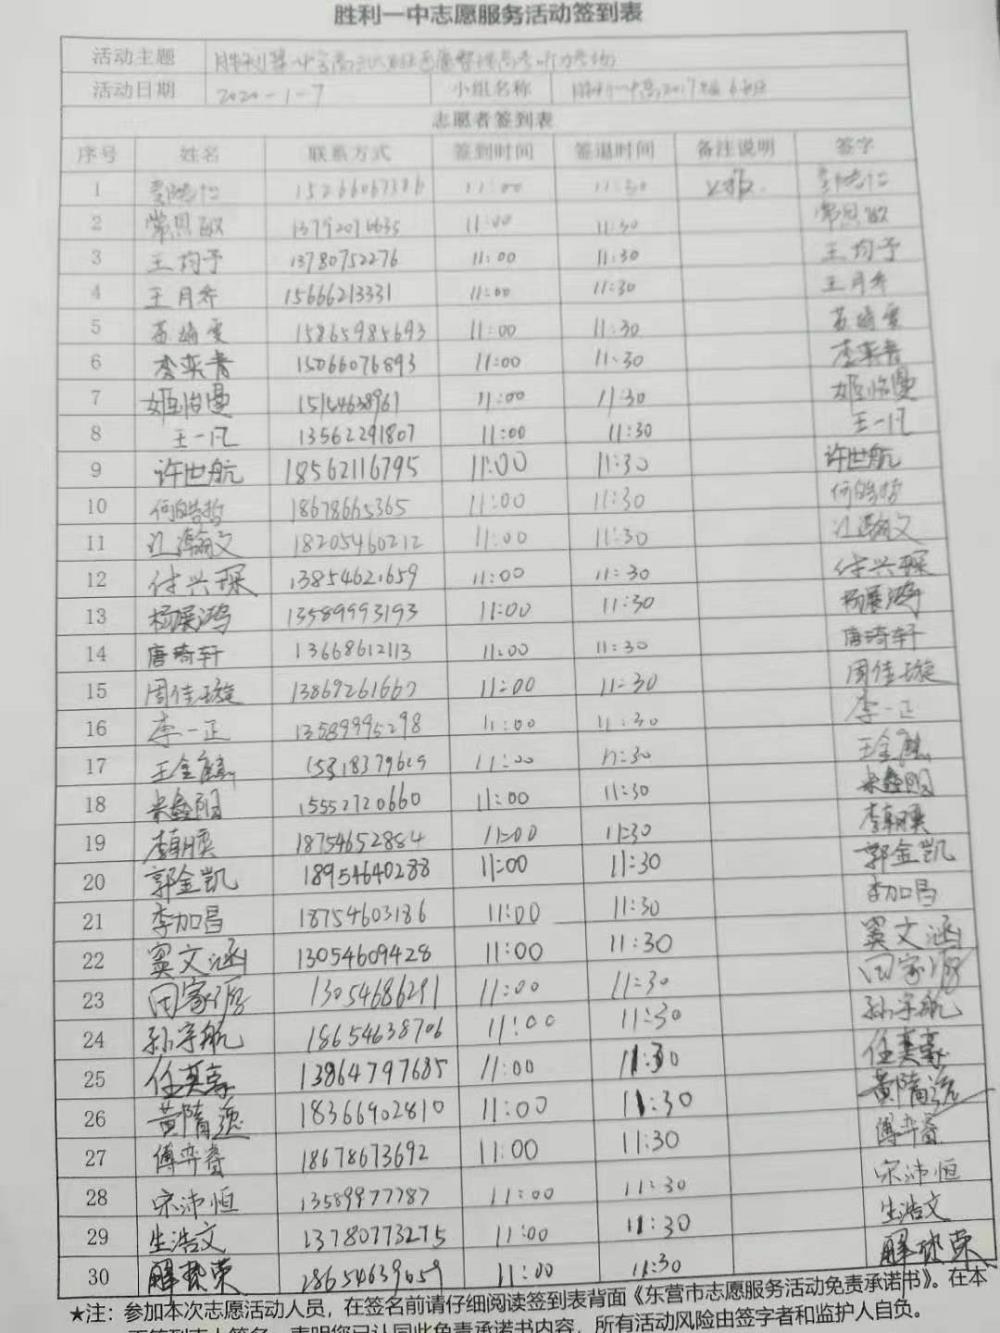 胜利一中志愿服务活动签到表
活动主题
活动日期 2020-1-7 小组名称 胜利一中高2017级6班
志愿者签到表
序号 姓名 联系方式 签到时间 签退时间 备注说明 签字
1 11:00 11:30
2 常贝 11:00 11:30 常贝
3 王均予 13780752276 11:00 11:30 王均予
4 王月乔 15666213331 11:00 11:30 王月乔
5 苏绮雯 15865985693 11:00 11:30 苏绮雯
6 李奕青 15066076893 11:00 11:30 李奕青
7 姬怡曼 11:00 11:30 姬怡曼
8 王一凡 13562291807 11:00 11:30 王一凡
9 许世航 18562116795 11:00 11:30 许世航
10 何皓哲 18678665365 11:00 11:30 何皓哲
11 江瀚文 18205460212 11:00 11:30 江瀚文
12 付兴琛 13854621659 11:00 11:30 付兴琛
13 杨展鸿 13589993193 11:00 11:30 杨展鸿
14 唐琦轩 13668612113 11:00 11:30 唐琦轩
15 周佳璇 13869261667 11:00 11:30 周佳璇
16 李一正 13589995298 11:00 11:30 李一正
17 王金麒 11:00 11:30 王金麒
18 15552720660 11:00 11:30
19 李朝 18754652884 11:00 11:30 李朝
20 郭金凯 18954640288 11:00 11:30 郭金凯
21 李加昌 18754603186 11:00 11:30 李加昌
22 窦文涵 13054609428 11:00 11:30 窦文涵
23 田家 13054686291 11:00 11:30 田家
24 孙宇航 18654638706 11:00 11:30 孙宇航
25 任英豪 13864797685 11:00 11:30 任英豪
26 黄隋 18366902810 11:00 11:30 黄隋
27 傅弈赛 18678673692 11:00 11:30 傅弈赛
28 宋沛恒 13589977787 11:00 11:30 宋沛恒
29 生浩文 13780773275 11:00 11:30 生浩文
30 18654639059 11:00 11:30
★注：参加本次志愿活动人员，在签名前请仔细阅读签到表背面《东营市志愿服务活动免责承诺书》。在本
页签到表上签名，表明您已认同此免责承诺书内容，所有活动风险由签字者和监护人自负。